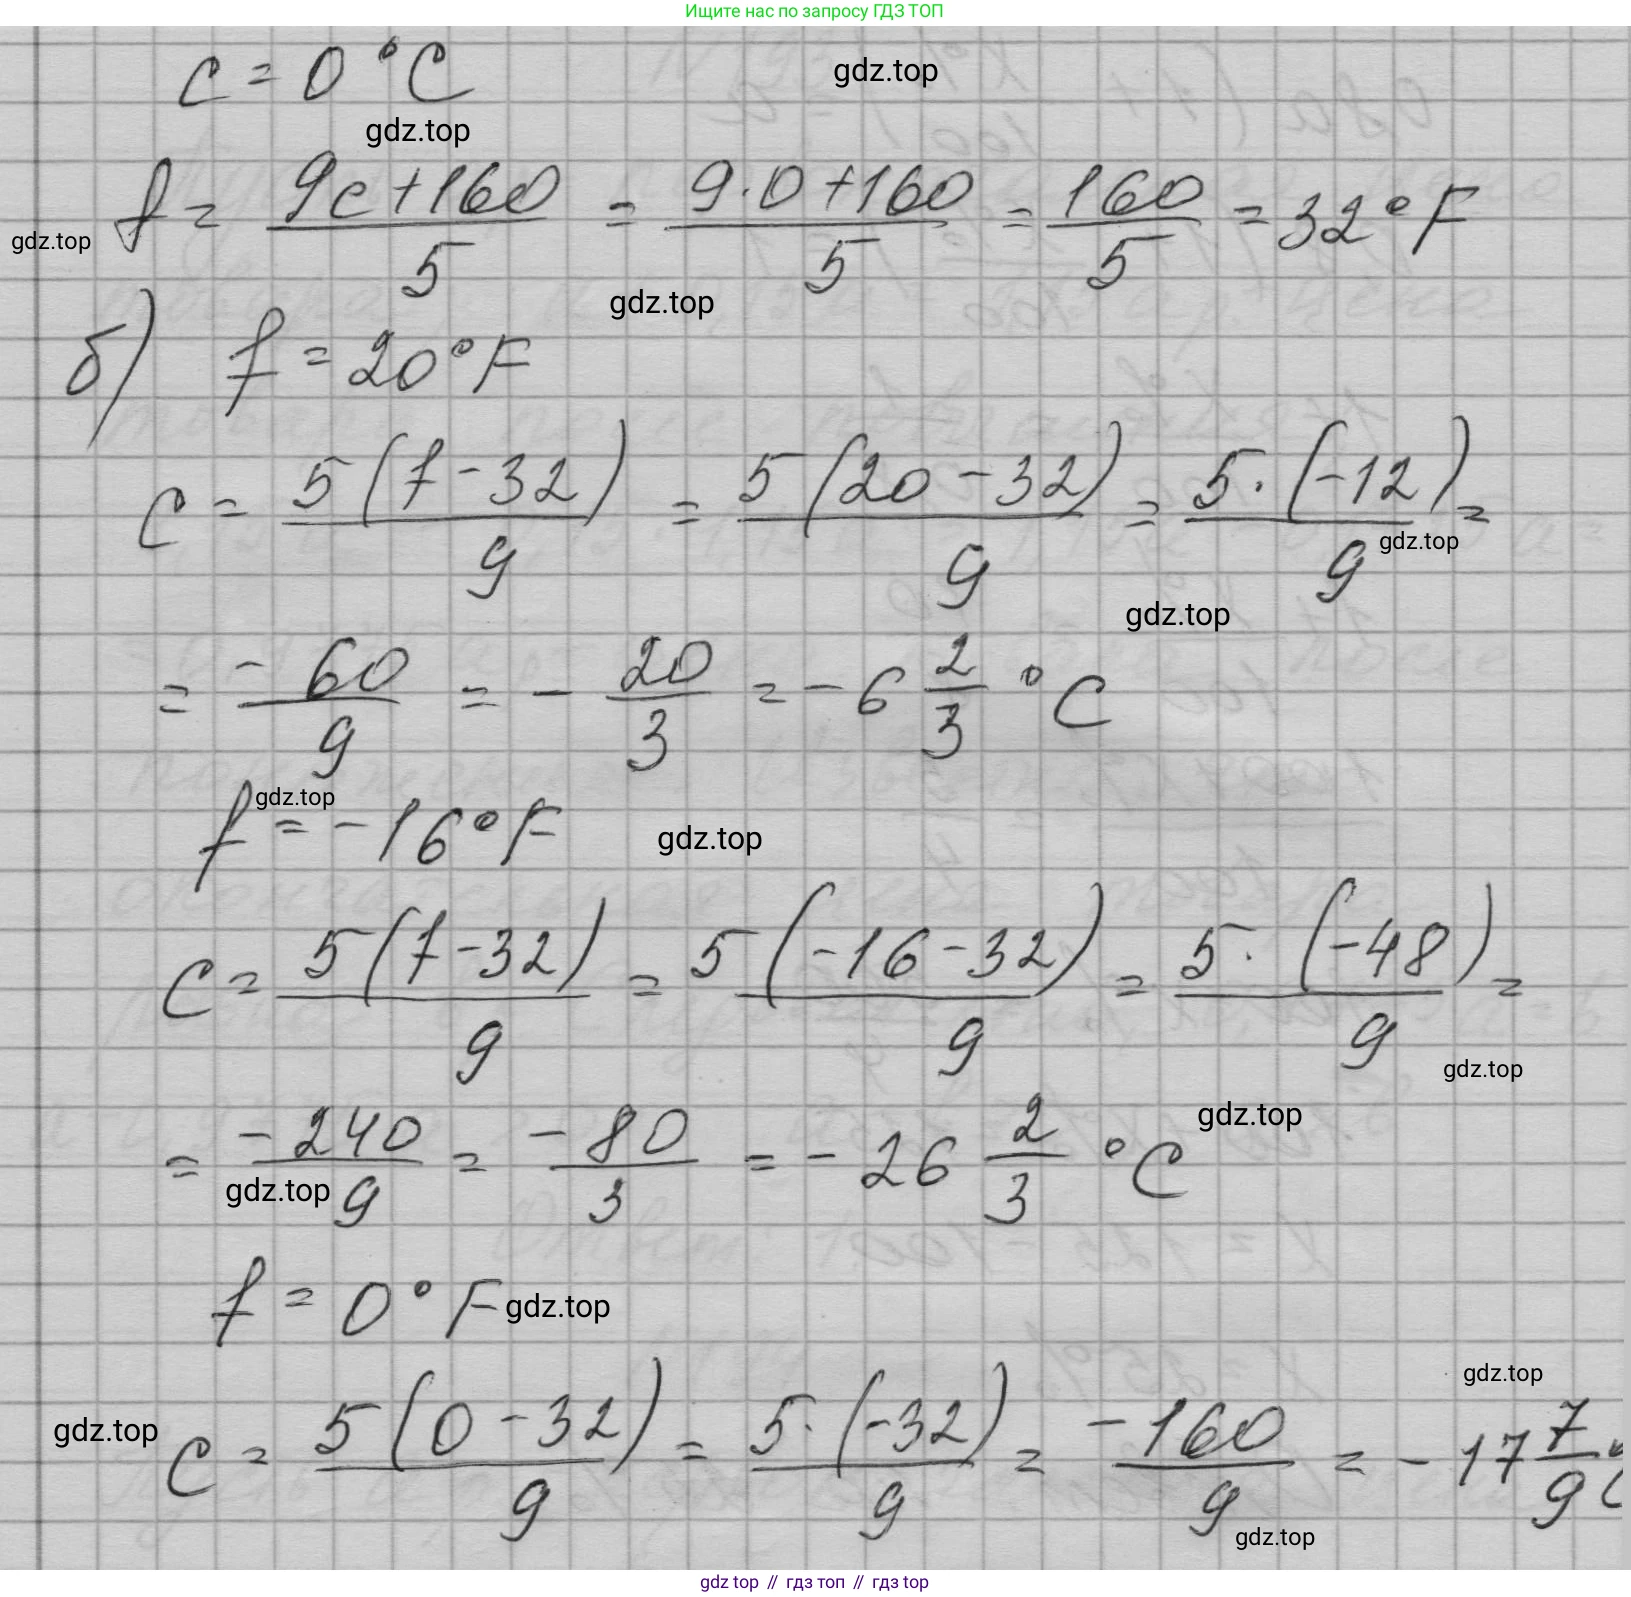 Ищите нас по запросу ГДЗ ТОП
c = 0 °C
gdz.top
gdz.top
f = (9c + 160)/5 = (9·0 + 160)/5 = 160/5 = 32 °F
gdz.top
gdz.top
б) f = 20 °F
c = 5(f - 32)/9 = 5(20 - 32)/9 = 5·(-12)/9 =
gdz.top
gdz.top
= -60/9 = - 20/3 = - 6 2/3 °C
gdz.top
f = -16 °F
gdz.top
c = 5(f - 32)/9 = 5(-16 - 32)/9 = 5·(-48)/9 =
gdz.top
gdz.top
= -240/9 = -80/3 = - 26 2/3 °C
gdz.top
f = 0 °F
gdz.top
gdz.top
gdz.top
c = 5(0 - 32)/9 = 5·(-32)/9 = -160/9 = - 17 7/9 °C
gdz.top
gdz top // гдз топ // гдз top